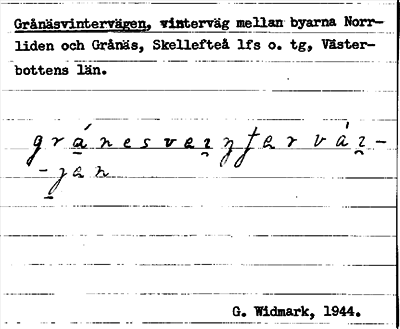 Gränäsvintervägen, vinterväg mellan byarna Norr-
liden och Gränäs, Skellefteå lfs o. tg, Väster-
bottens län.
gránesveɪntarváɪ-
-jan
G. Widmark, 1944.